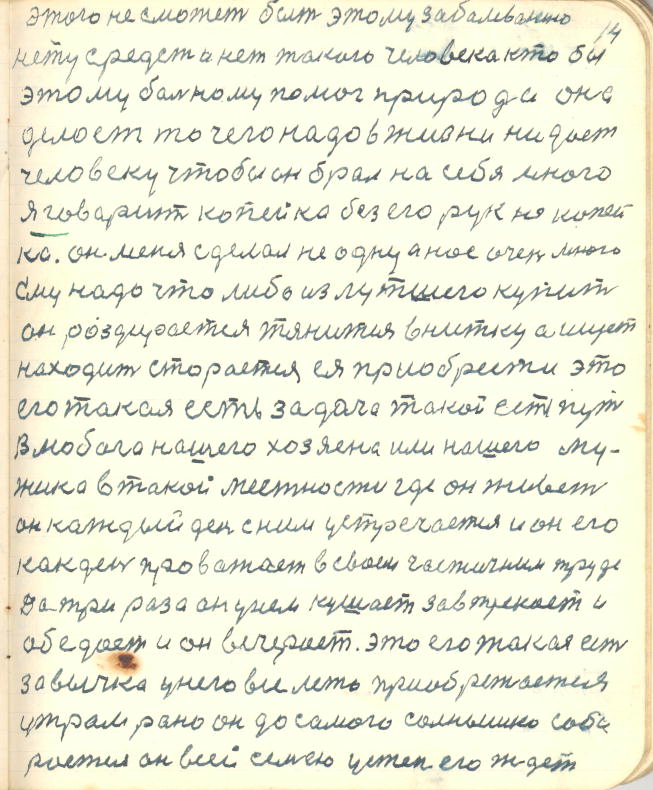 14
этого не сможет быт этому забалеванию
нету средств и нет такого человека кто бы
этому балному помог природа она
делоет то чего надо в жизни ни дает
человеку чтобы он брал на себя много
Я говарит копейка без его рук не копей
ка. он меня сделал не одну а нас очен много
ему надо что либо из лутшего купит
он роздирается тянится в нитку а ищет
находит старается ея приобрести это
его такая есть задача такой есть пут
в любога нашего хозяена или нашего му-
жика в такой местности где он живет
он каждый ден с ним устречается и он его
как ден провожает в своем частичним труде
Да три раза он унем кушает завтрекает и
обедоет и он вечерает. это его такая ест
завычка у него вы лето приобретается
утрам рано он до самого солнышко соби
рается он всей семею его ждет